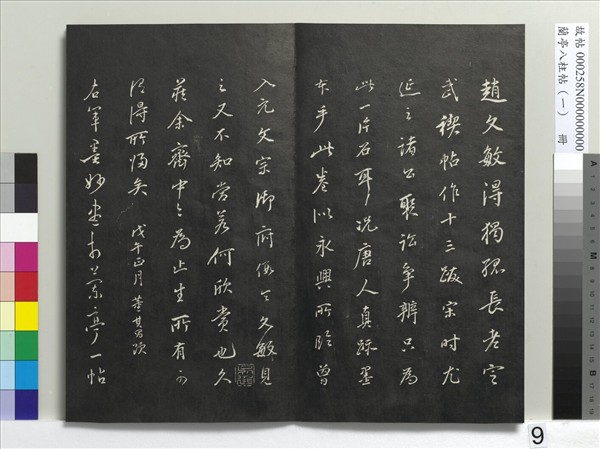 故帖 000258N000000000
蘭亭八柱帖（一） 冊
趙文敏得獨孤長老定
武禊帖作十三跋宋時尤
延之諸公聚訟爭辨只為
此一片石耳況唐人真跡墨
本乎此卷似永興所臨曾
入元文宗御府假令文敏見
之又不知當若何欣賞也久
藏余齋中今為止生所有可
謂得所歸矣 戊午正月董其昌題
右軍墨妙盡於蘭亭一帖
9